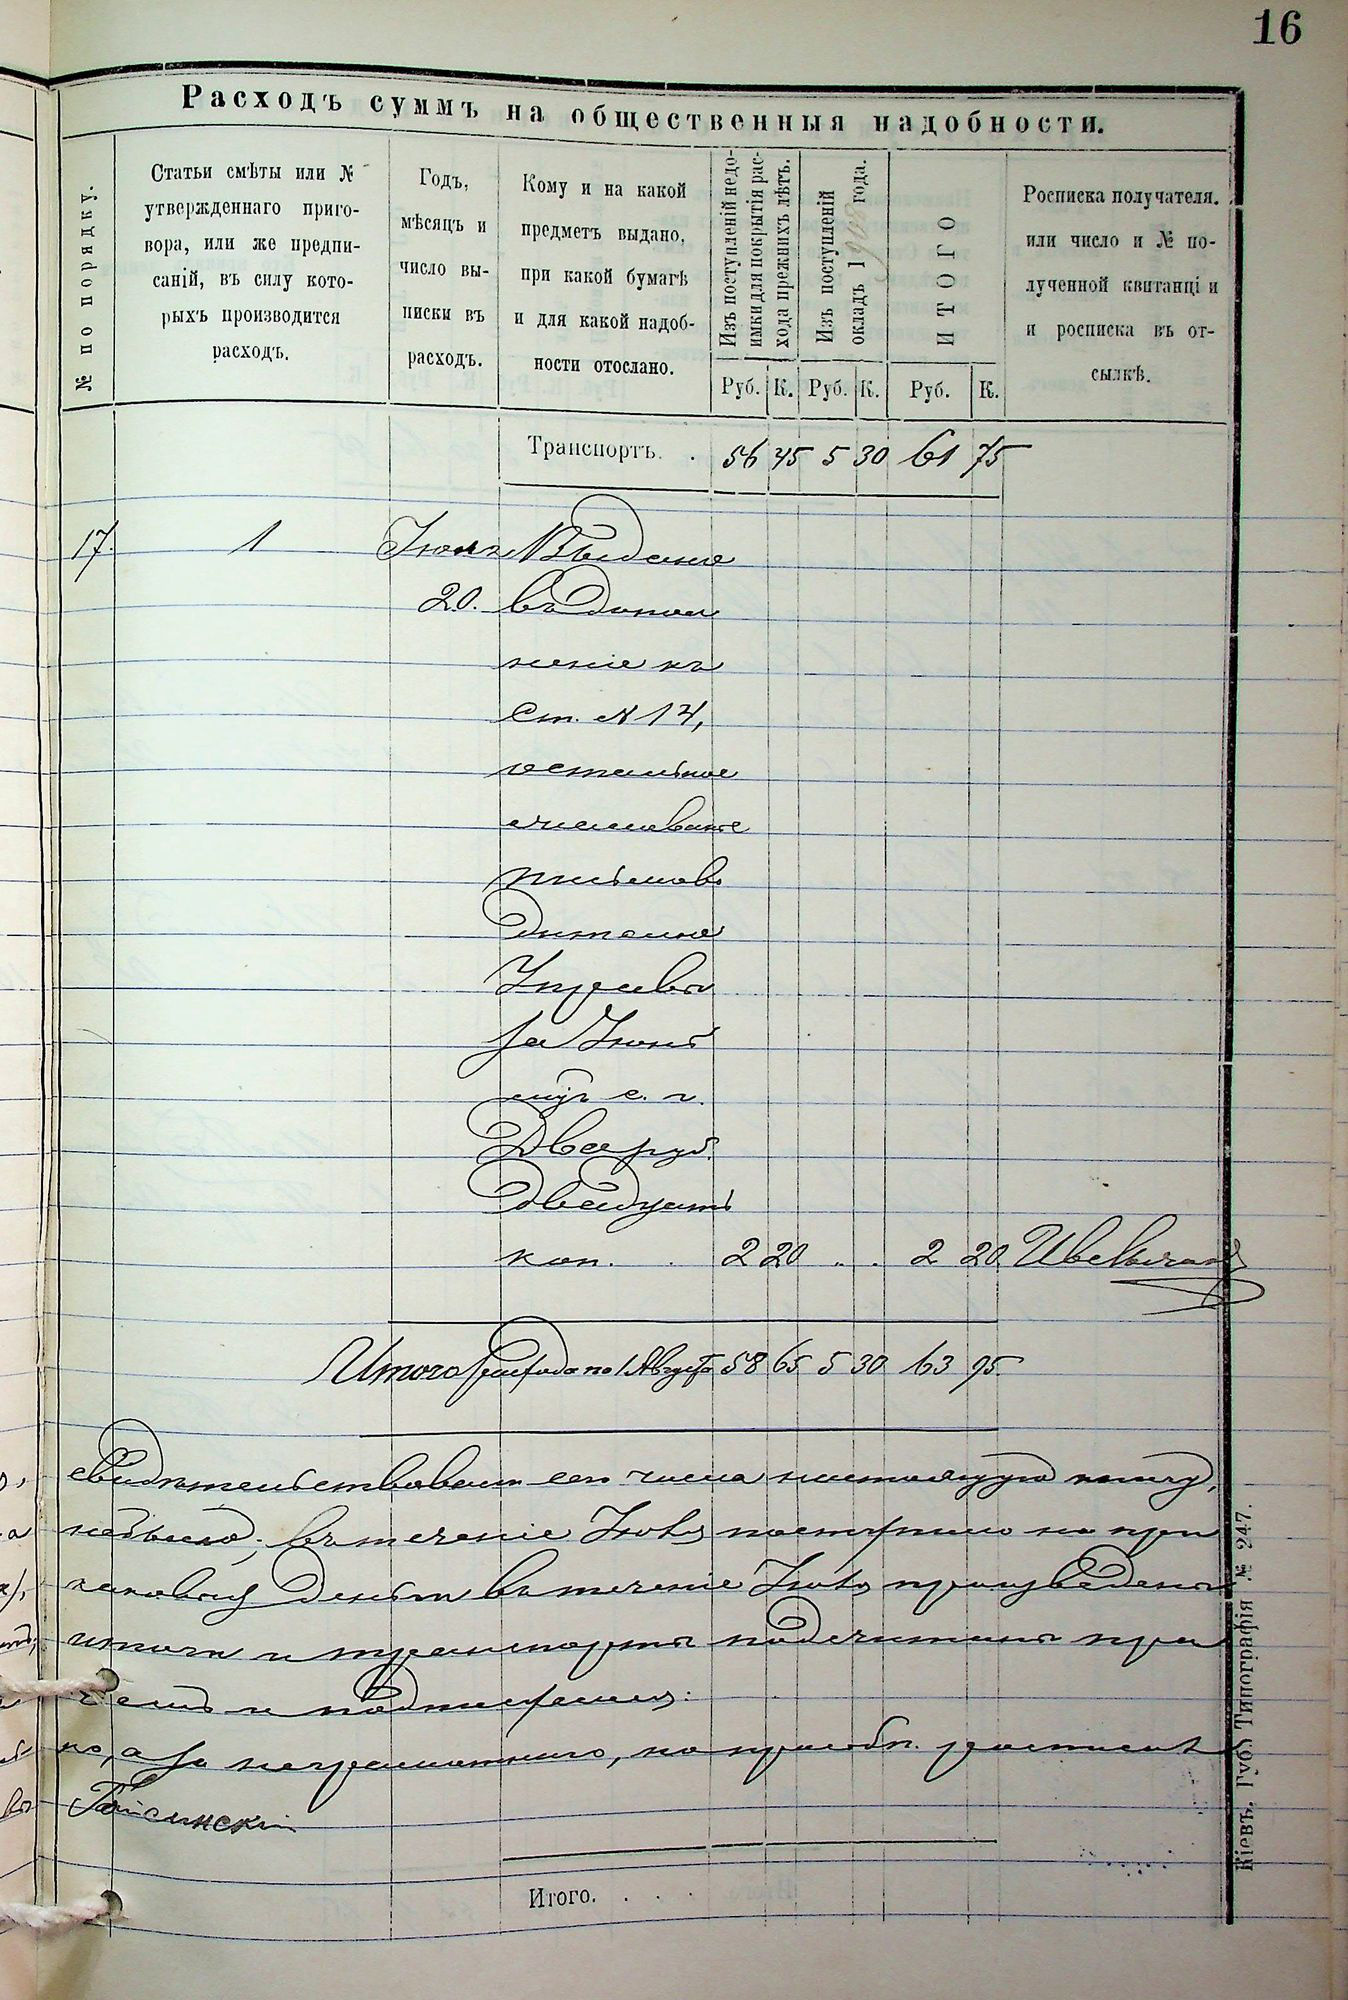 16
Расходъ суммъ на общественныя надобности.
№ по порядку.
Статьи смѣты или №
утвержденнаго приго-
вора, или же предпи-
саній, въ силу кото-
рыхъ производится
расходъ.
Годъ,
мѣсяцъ и
число вы-
писки въ
расходъ.
Кому и на какой
предметъ выдано,
при какой бумагѣ
и для какой надоб-
ности отослано.
Изъ поступленій недо-
имки для покрытія рас-
хода прежнихъ лѣтъ.
Изъ поступленій
окладъ 1908 года.
ИТОГО
Росписка получателя.
или число и № по-
лученной квитанці и
и росписка въ от-
сылкѣ.
Руб. К. Руб. К. Руб. К.
Транспортъ. . 56 45 5 30 61 75
17. 1 Іюля Выдано
20. въ допол
неніе къ
Ст. № 14,
остальное
жалованье
письмов
дителю
за Іюнь
мцъ с. г.
Два руб.
двадцать
коп. . 2 20 . . 2 20
Итого расхода по 1 Августа 58 65 5 30 63 95.
свидѣтельствовали сего числа настоящую книгу,
небыло; въ теченіе Іюля поступило на при
ходъ деньги въ теченіе Іюля произведены
итоги и транспорты подсчитаны пра
но, а за неграмотнаго, по просьбѣ росписался
Гайсинскій
Итого. . . .
Кіевъ. Губ. Типографія № 247.